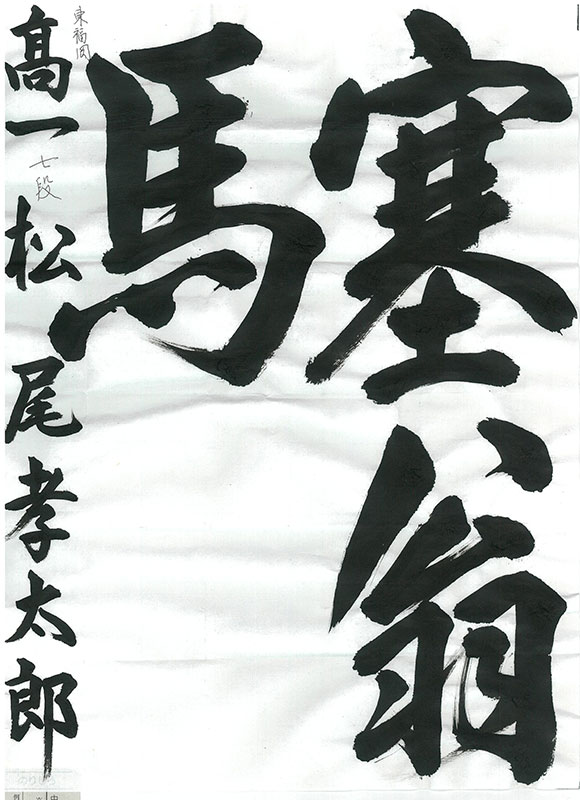 塞翁
馬
東福岡
髙一 七段 松尾孝太郎